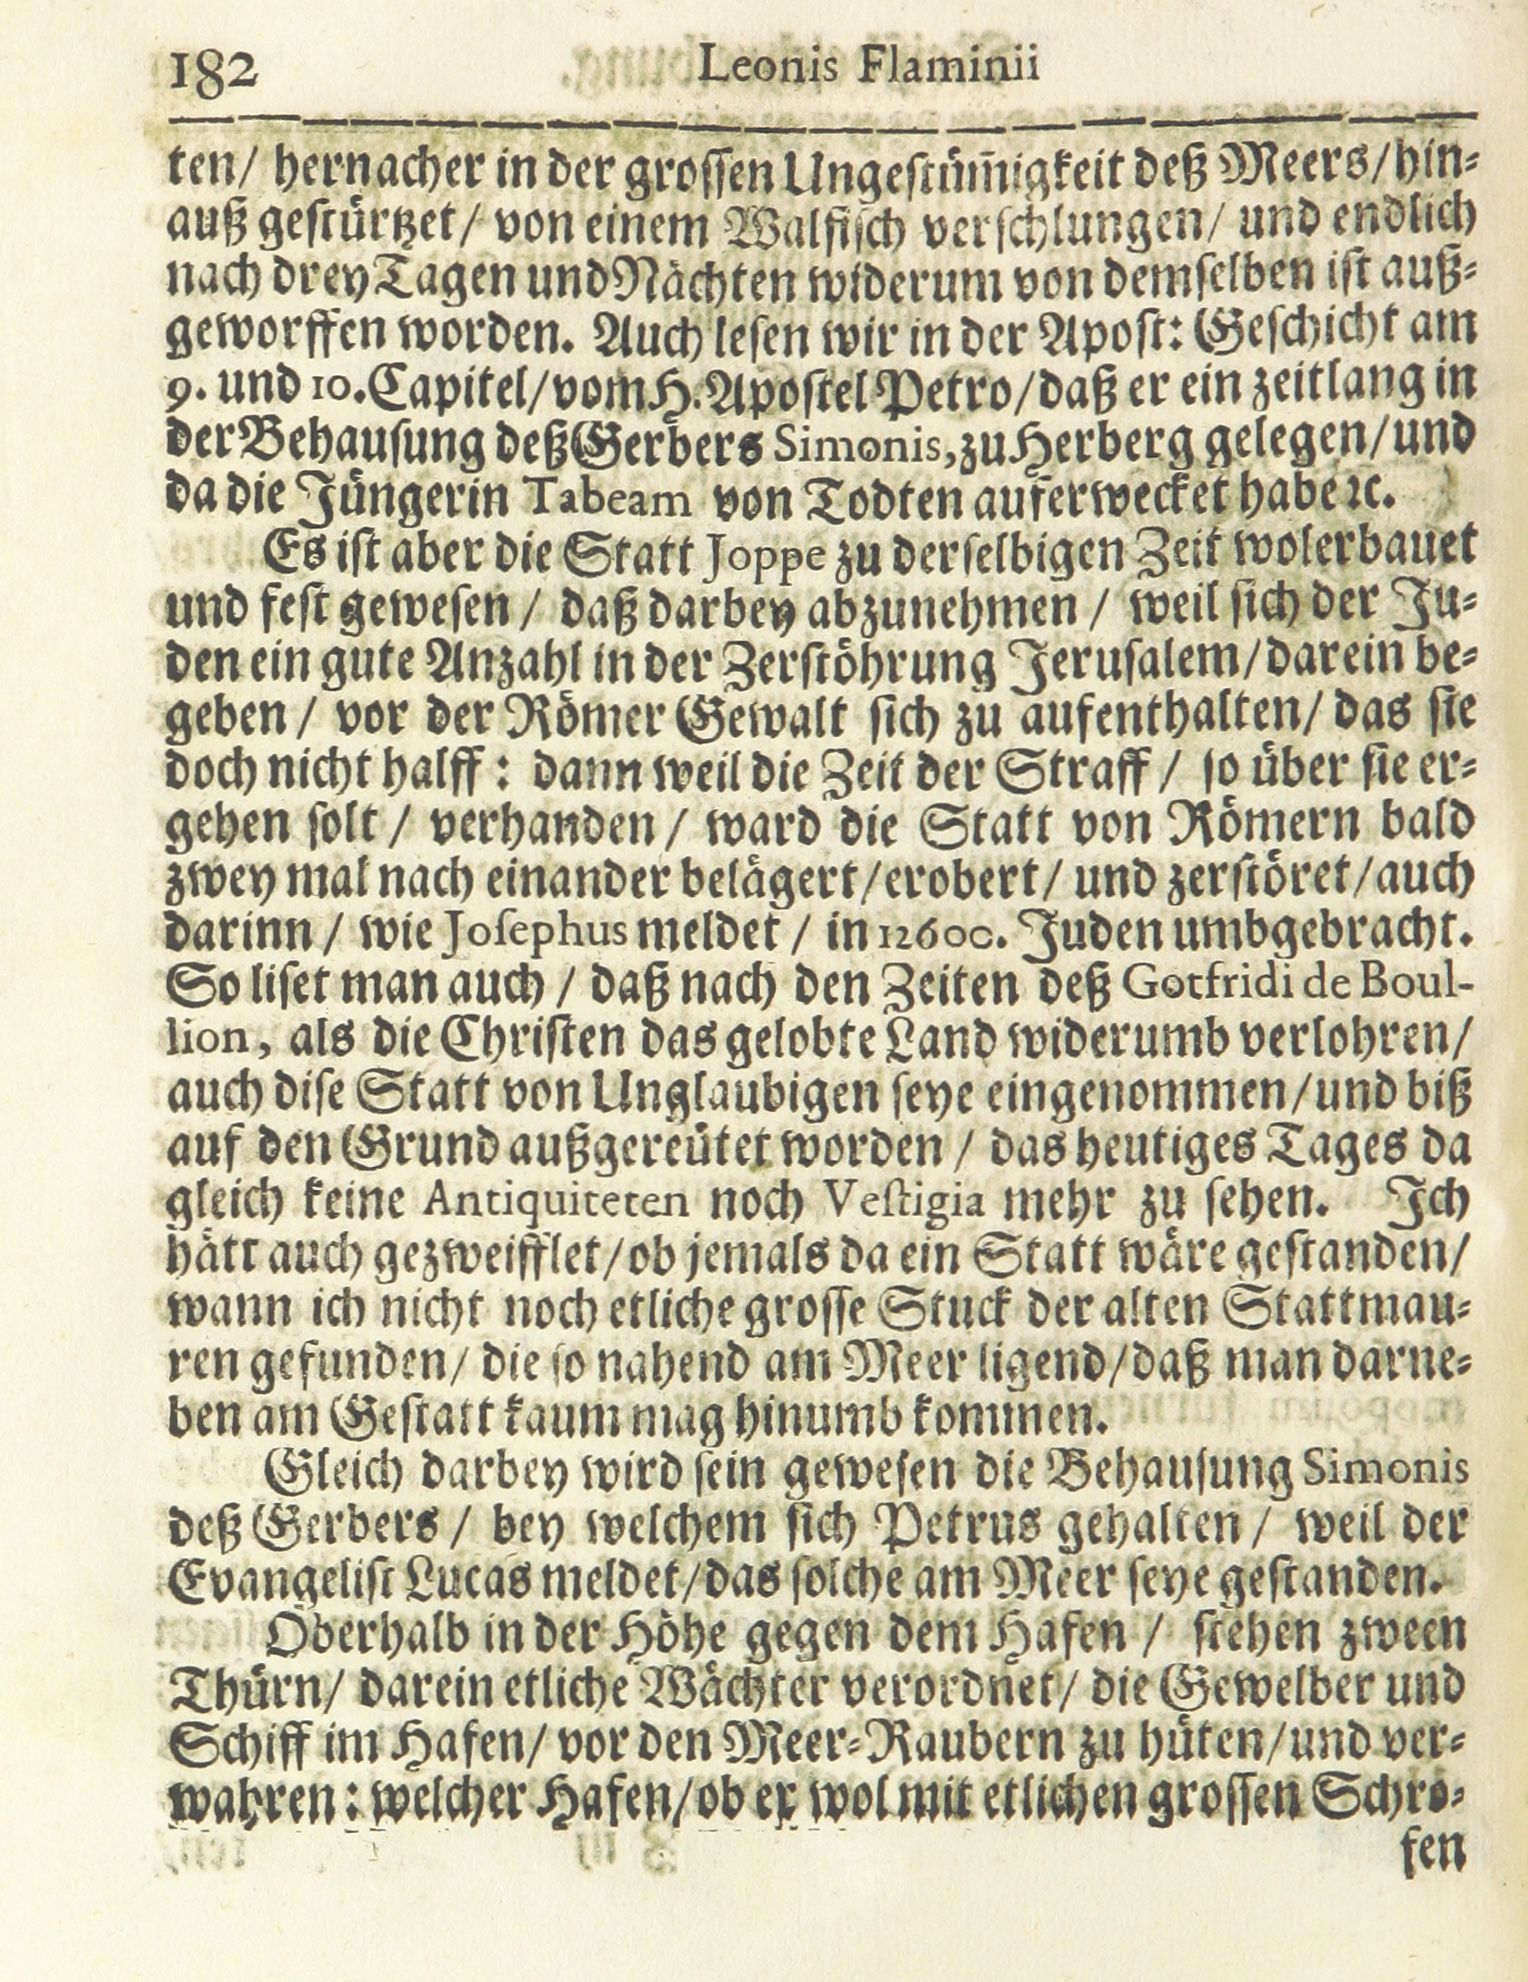 182 Leonis Flaminii
ten/ hernacher in der grossen Ungestüm̄igkeit deß Meers/hin-
auß gestürtzet/ von einem Walfisch verschlungen/ und endlich
nach drey Tagen und Nächten widerum von demselben ist auß-
geworffen worden. Auch lesen wir in der Apost: Geschicht am
9. und 10. Capitel/vom H. Apostel Petro/daß er ein zeitlang in
der Behausung deß Gerbers Simonis, zu Herberg gelegen/und
da die Jüngerin Tabeam von Todten auferwecket habe ꝛc.
Es ist aber die Statt Joppe zu derselbigen Zeit wolerbauet
und fest gewesen / daß darbey abzunehmen / weil sich der Ju-
den ein gute Anzahl in der Zerstöhrung Jerusalem/darein be-
geben / vor der Römer Gewalt sich zu aufenthalten/ das sie
doch nicht halff: dann weil die Zeit der Straff / so über sie er-
gehen solt / verhanden / ward die Statt von Römern bald
zwey mal nach einander belägert/erobert/ und zerstöret/auch
darinn / wie Josephus meldet / in 12600. Juden umbgebracht.
So liset man auch / daß nach den Zeiten deß Gotfridi de Boul-
lion, als die Christen das gelobte Land widerumb verlohren/
auch dise Statt von Unglaubigen seye eingenommen/und biß
auf den Grund außgereütet worden / das heutiges Tages da
gleich keine Antiquiteten noch Vestigia mehr zu sehen. Ich
hätt auch gezweifflet/ob jemals da ein Statt wäre gestanden/
wann ich nicht noch etliche grosse Stuck der alten Stattmau-
ren gefunden/ die so nahend am Meer ligend/daß man darne-
ben am Gestatt kaum mag hinumb kommen.
Gleich darbey wird sein gewesen die Behausung Simonis
deß Gerbers / bey welchem sich Petrus gehalten / weil der
Evangelist Lucas meldet/das solche am Meer seye gestanden.
Oberhalb in der Höhe gegen dem Hafen / stehen zween
Thürn/ darein etliche Wächter verordnet/ die Gewelber und
Schiff im Hafen/ vor den Meer-Raubern zu hüten/und ver-
wahren: welcher Hafen/ob er wol mit etlichen grossen Schro-
fen